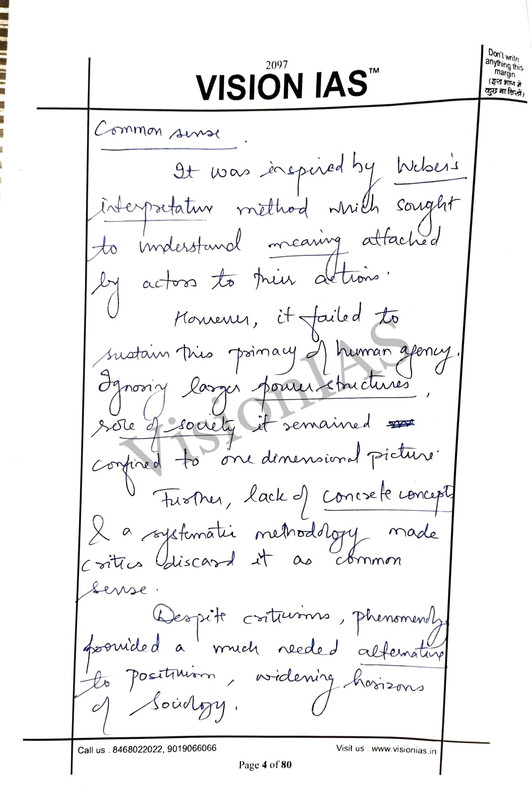 2097
VISION IAS™
Don't write
anything this
margin
(इस भाग में
कुछ ना लिखें)
Common sense.
It was inspired by Weber's
interpretative method which sought
to understand meaning attached
by actors to their actions.
However, it failed to
sustain this primacy of human agency.
Ignoring larger power structures,
role of society it remained
confined to one dimensional picture.
Further, lack of concrete concepts
& a systematic methodology made
critics discard it as common
sense.
Despite criticisms, phenomenology
provided a much needed alternative
to positivism, widening horizons
of Sociology.
VisionIAS
Call us : 8468022022, 9019066066
Visit us : www.visionias.in
Page 4 of 80